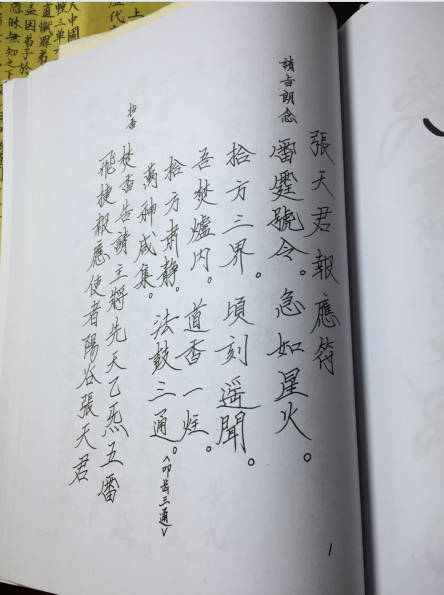 張天君報應符
請香朗念
雷霆號令。急如星火。
拾方三界。頃刻遥聞。
吾焚爐內。道香一炷。
拾方肅靜。法鼓三通。(叩齒三通)
萬神咸集。
拈香
焚香告請主將先天乙炁五雷
飛捷報應使者陽谷張天君
1